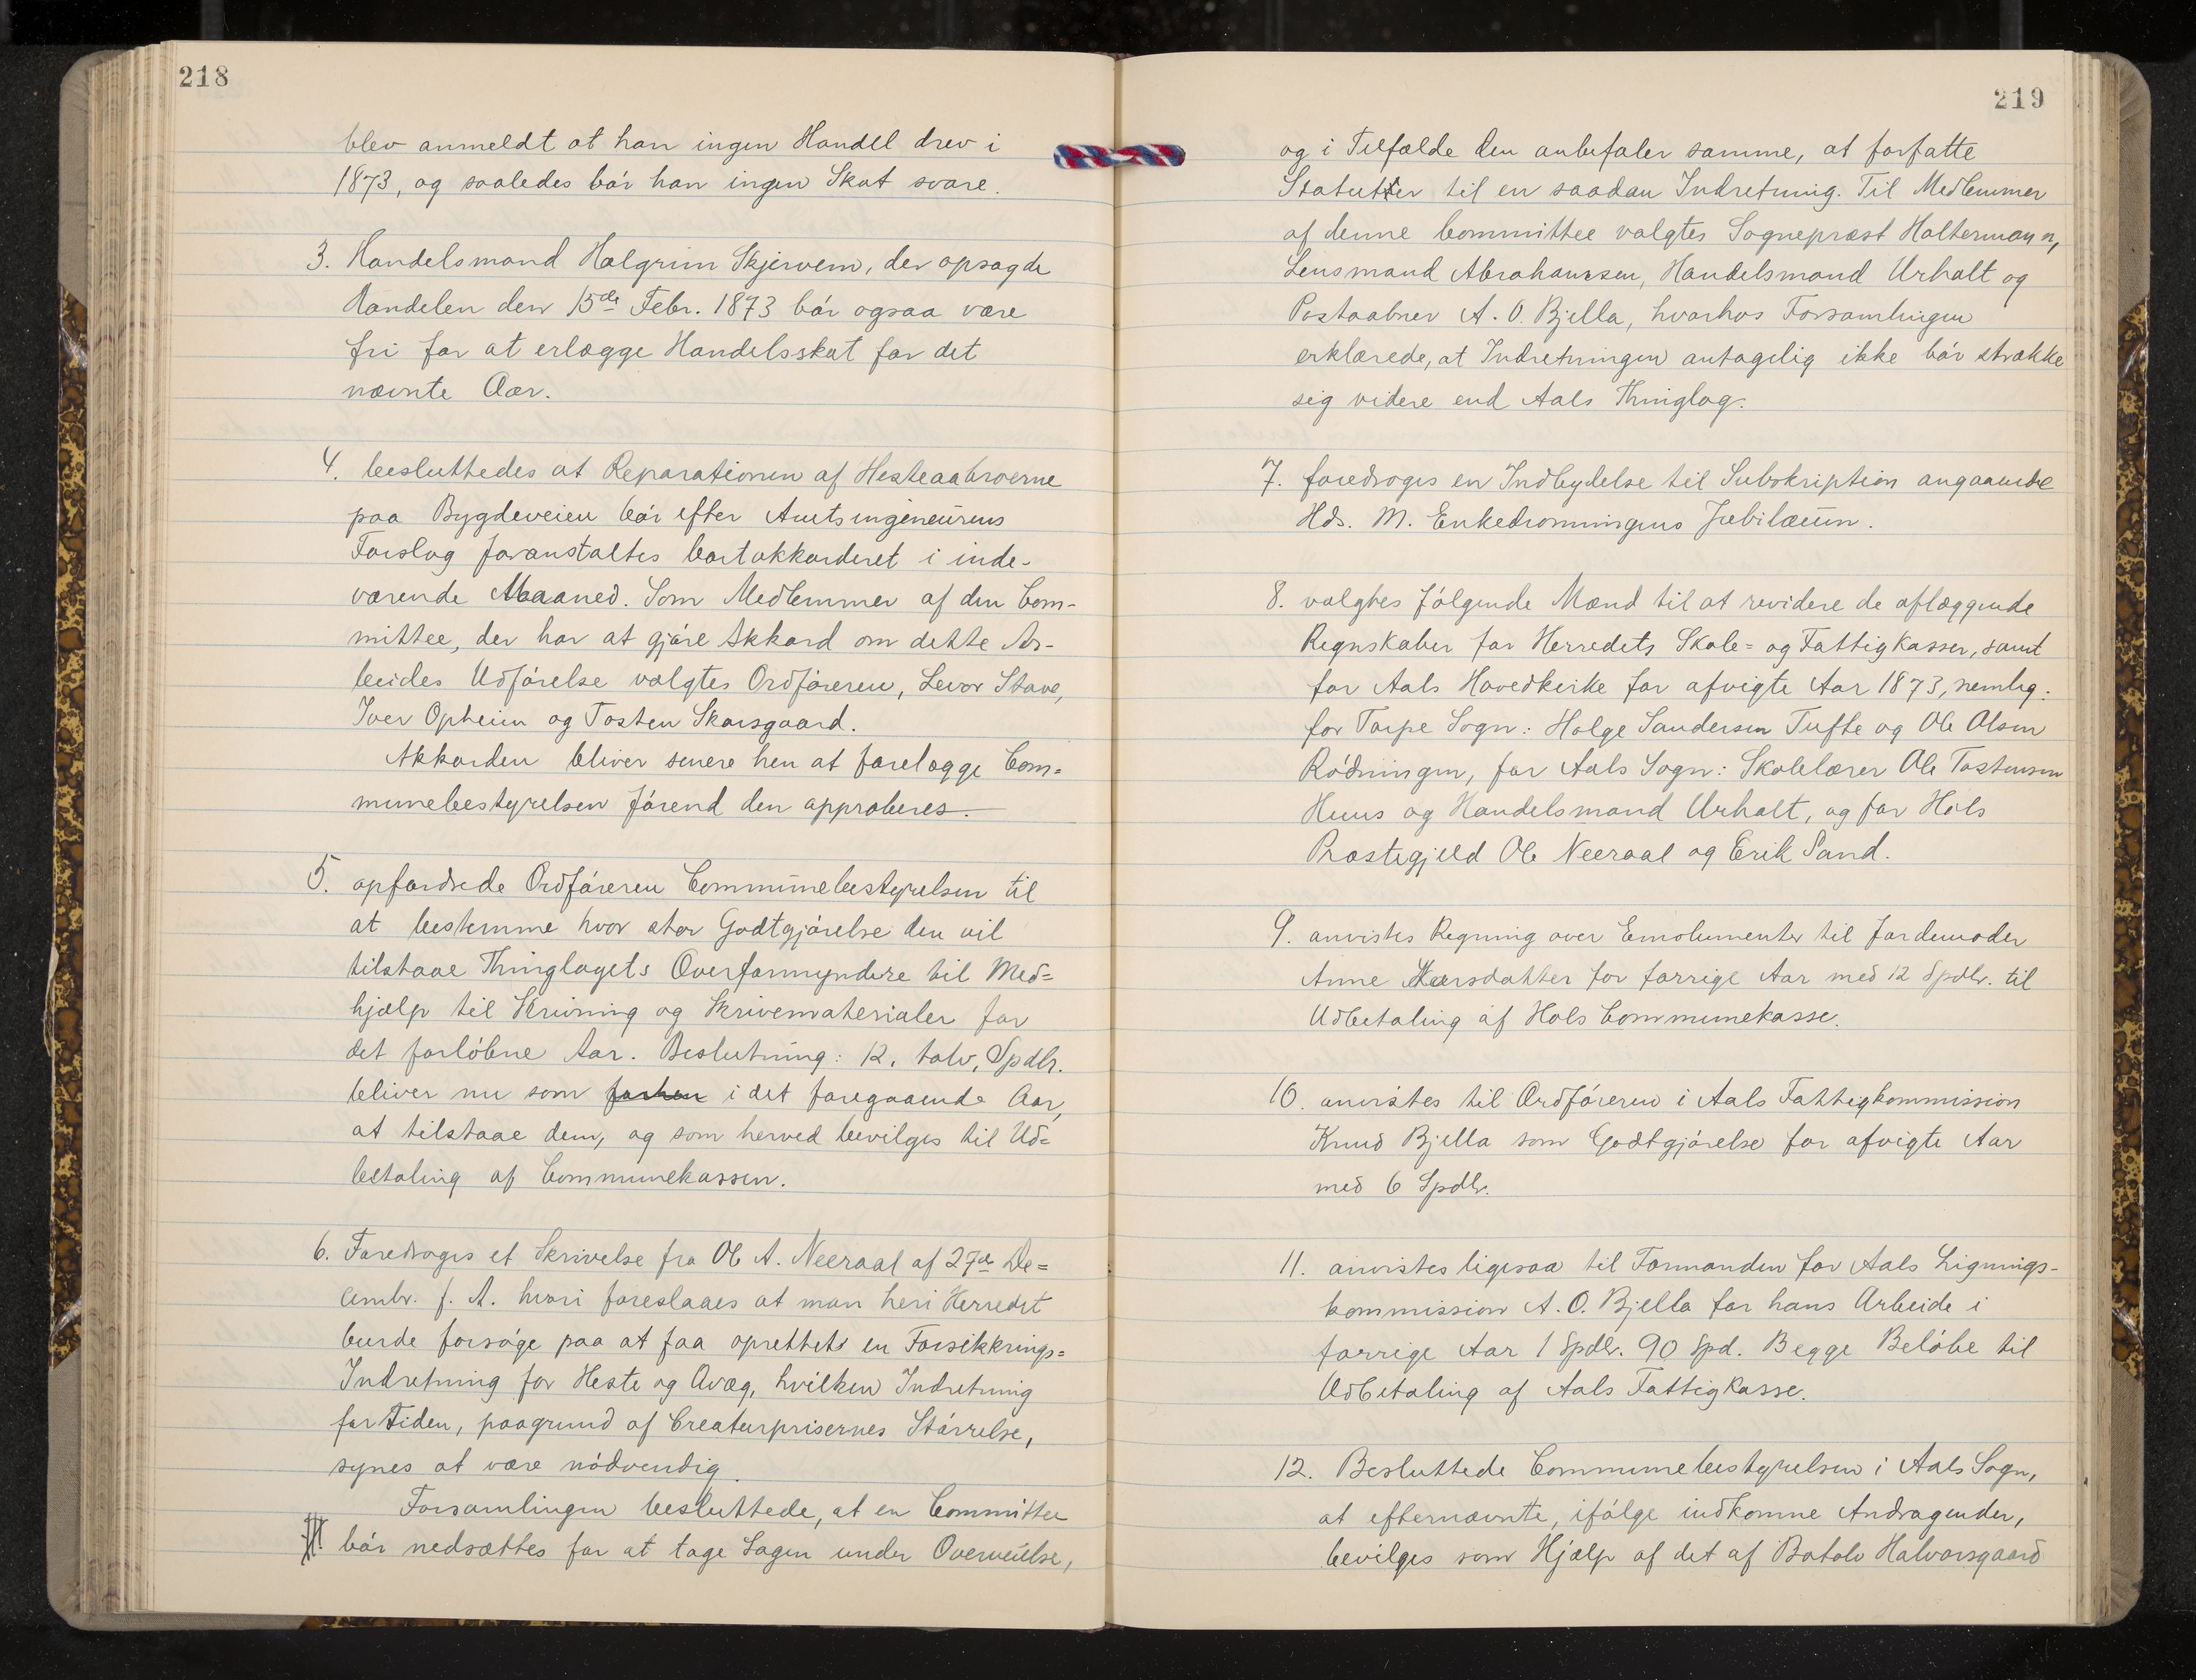 218
blev anmeldt at han ingen Handel drev i
1873, og saaledes bør han ingen Skat svare.
3. Handelsmand Halgrim Skjervem, der opsagde
Handelen den 15de Febr. 1873 bør ogsaa være
fri for at erlægge Handelsskat for det
nævnte Aar.
4. besluttedes at Reparationen af Hesteaabroerne
paa Bygdeveien bør efter Amtsingeneurens
Forslag foranstaltes bortakkorderet i inde-
værende Maaned. Som Medlemmer af den Com-
mittee, der har at gjøre Akkord om dette Ar-
beides Udførelse valgtes Ordføreren, Levor Stave,
Iver Opheim og Tosten Skarsgaard.
Akkorden bliver senere hen at forelægge Com=
munebestyrelsen førend den approberes.
5. opfordrede Ordføreren Communebestyrelsen til
at bestemme hvor stor Godtgjørelse den vil
tilstaae Thinglagets Overformyndere til Med=
hjælp til Skrivning og Skrivematerialer for
det forløbne Aar. Beslutning: 12, tolv, Spdlr.
bliver nu som forhen i det foregaaende Aar,
at tilstaae dem, og som herved bevilges til Ud=
betaling af Communekassen.
6. Foredroges et Skrivelse fra Ole A. Neeraal af 27de De=
cembr. f. A. hvori foreslaaes at man heri Herredet
burde forsøge paa at faa oprettet en Forsikkrings=
Indretning for Heste og Qvæg, hvilken Indretning
for Tiden, paagrund af Creaturprisernes Størrelse,
synes at være nødvendig.
Forsamlingen besluttede, at en Committee
bør nedsættes for at tage Sagen under Overveielse,
219
og i Tilfælde den anbefaler samme, at forfatte
Statutter til en saadan Indretning. Til Medlemmer
af denne Committee valgtes Sognepræst Haltermann,
Lensmand Abrahamsen, Handelsmand Urholt og
Postaabner A. O. Bjella, hvorhos Forsamlingen
erklærede, at Indretningen antagelig ikke bør strække
sig videre end Aals Thinglag.
7. foredroges en Indbydelse til Subskription angaaende
Hds. M. Enkedronningens Jubilæum.
8. valgtes følgende Mænd til at revidere de aflæggende
Regnskaber for Herredets Skole= og Fattigkasser, samt
for Aals Hovedkirke for afvigte Aar 1873, nemlig:
for Torpe Sogn: Holge Sandersen Tufte og Ole Olsen
Rødningen, for Aals Sogn: Skolelærer Ole Tostensen
Huus og Handelsmand Urholt, og for Hols
Præstegjeld Ole Neeraal og Erik Sand.
9. anvistes Regning over Emolumenter til Jordemoder
Anne Larsdatter for forrige Aar med 12 Spdlr. til
Udbetaling af Hols Communekasse.
10. anvistes til Ordføreren i Aals Fattigkommission
Knud Bjella som Godtgjørelse for afvigte Aar
med 6 Spdlr.
11. anvistes ligesaa til Formanden for Aals Lignings-
kommission A. O. Bjella for hans Arbeide i
forrige Aar 1 Spdlr. 90 Spd. Begge Beløbe til
Udbetaling af Aals Fattigkasse.
12. Besluttede Communebestyrelsen i Aals Sogn,
at efternævnte, ifølge indkomne Andragender,
bevilges som Hjælp af det af Botolv Halvorsgaard